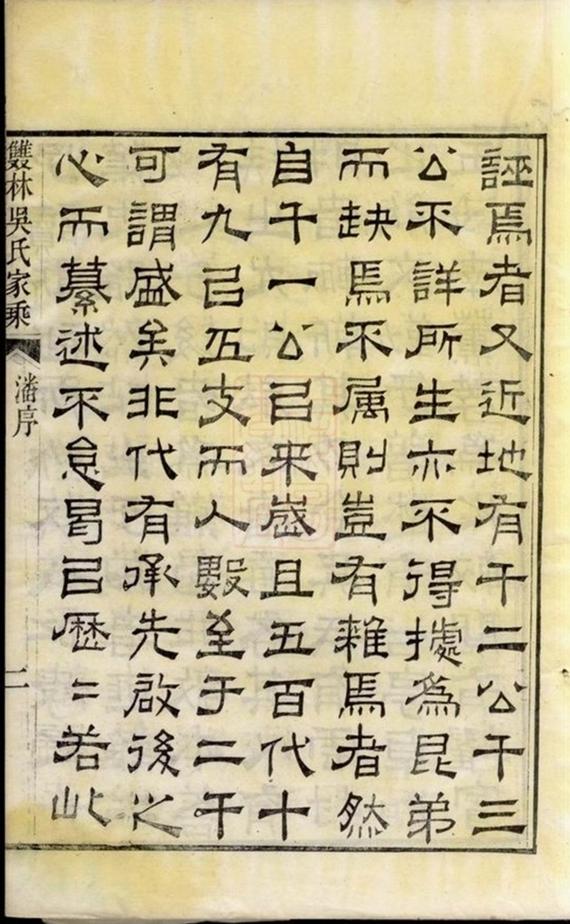 誣焉者又近地有千二公千三
公不詳所生亦不得據為昆弟
而缺焉不属則豈有雜焉者然
自千一公已来歲且五百代十
有九已五支而人數至于二千
可謂盛矣非代有承先啟後之
心而纂述不怠曷已歷〻若此
雙林吳氏家乘
潘序
二